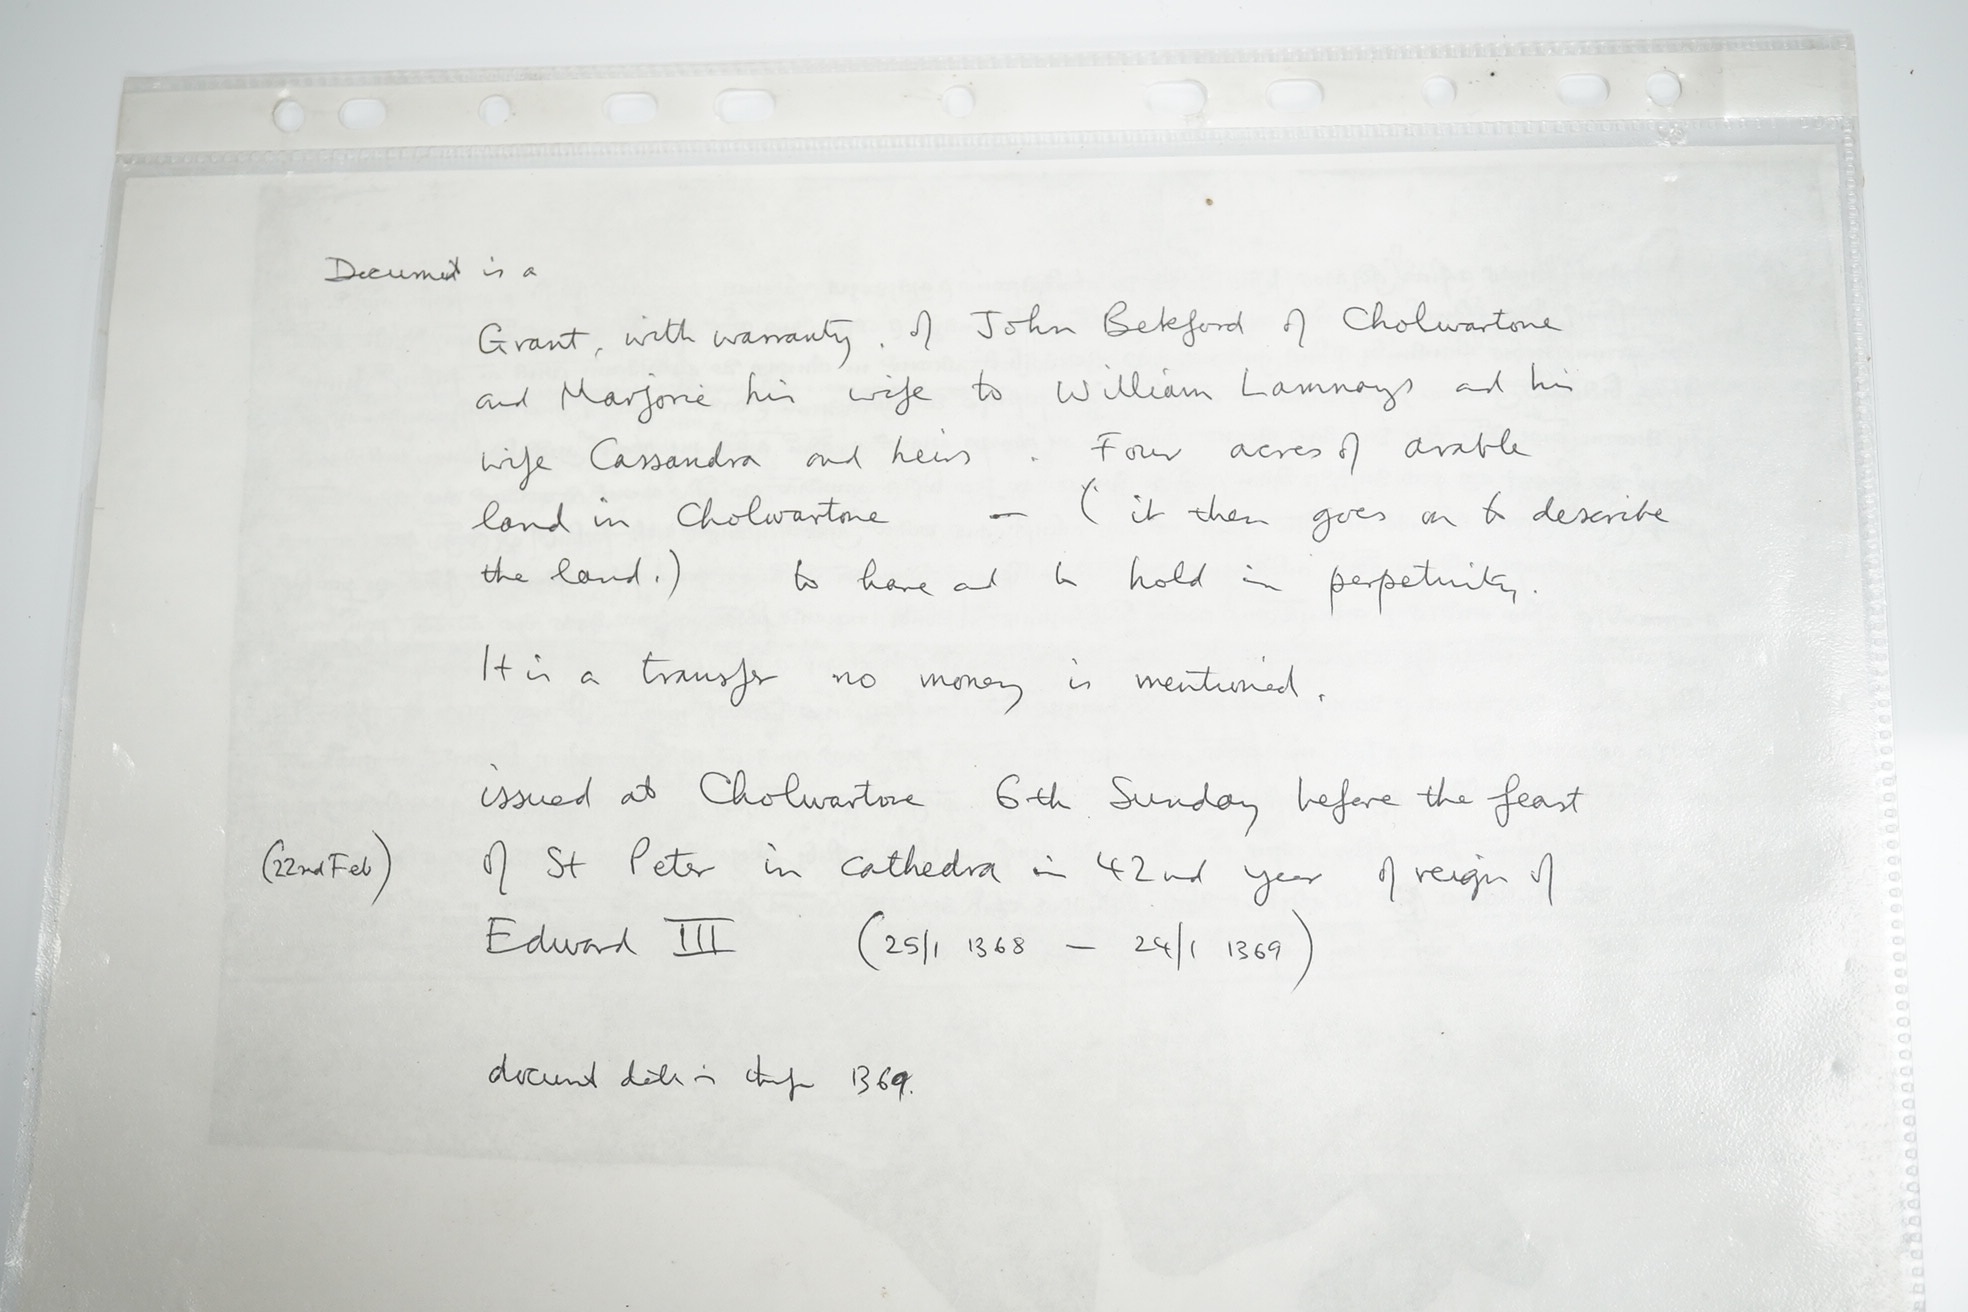 Document is a
Grant, with warranty, of John Bekford of Cholwartone
and Marjorie his wife to William Lamnays and his
wife Cassandra and heirs. Four acres of arable
land in Cholwartone — (it then goes on to describe
the land.) to have and to hold in perpetuity.
It is a transfer no money is mentioned.
issued at Cholwartone 6th Sunday before the feast
(22nd Feb) of St Peter in cathedra in 42nd year of reign of
Edward III (25/1 1368 — 24/1 1369)
document date is 1369.